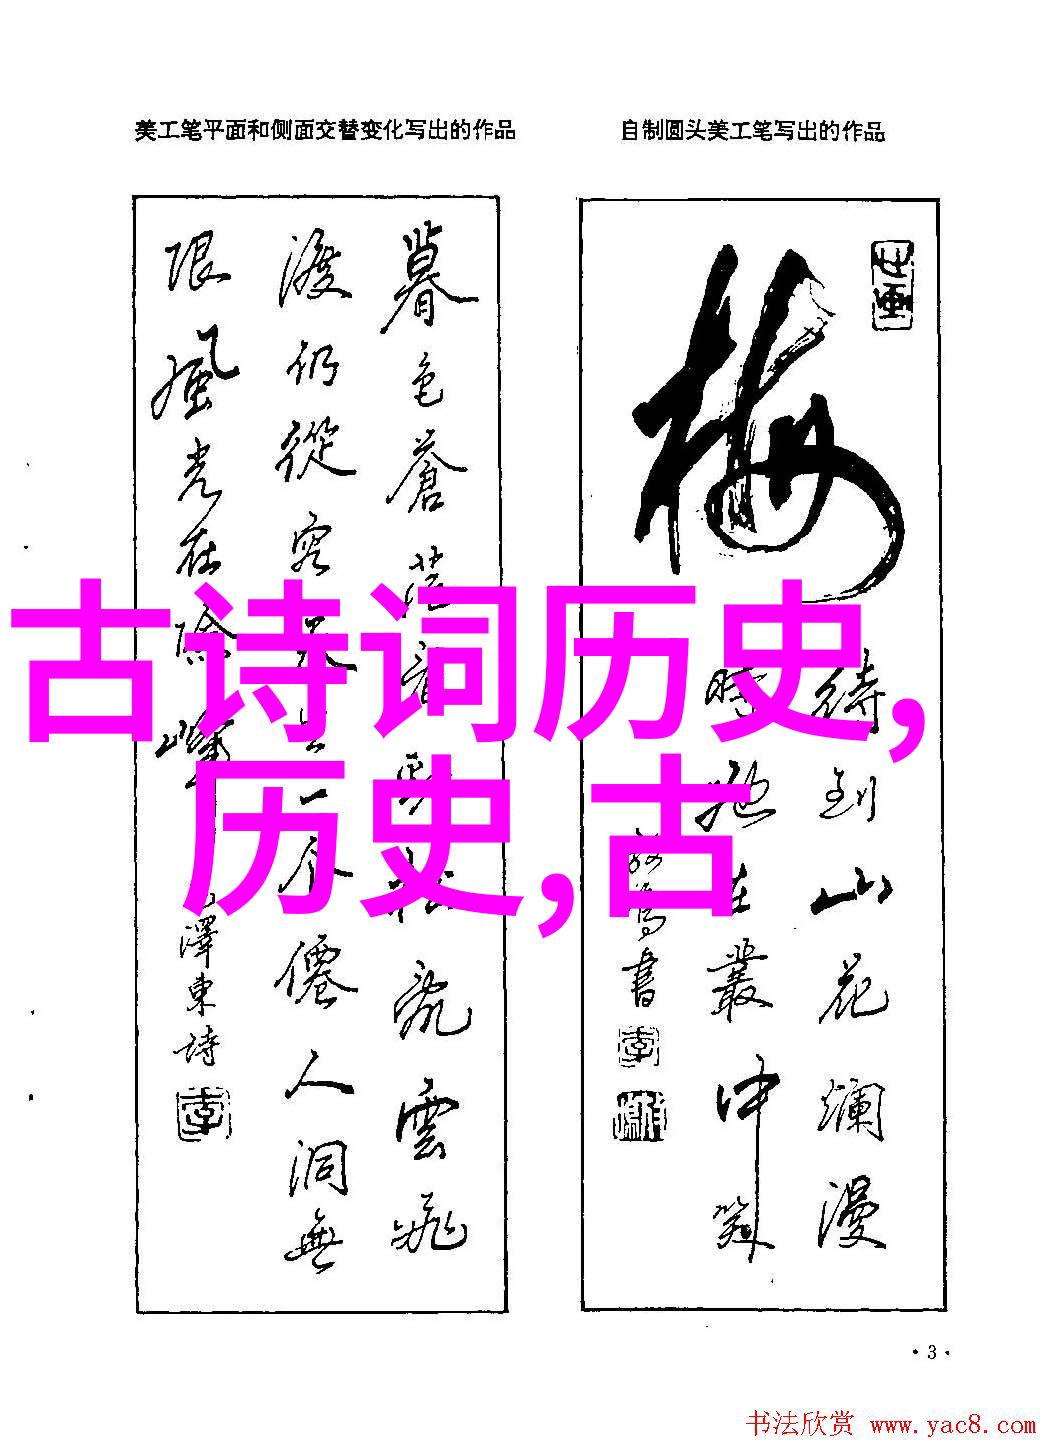 美工笔平面和侧面交替变化写出的作品
自制圆头美工笔写出的作品
暮色蒼茫看勁松亂雲飛
渡仍從容天生一个僊人洞無
限風光在險峰
毛澤東詩
梅
待到山花爛漫
時她在叢中笑
書
古诗词历史,
历史,古
·3·
书法欣赏 www.yac8.com